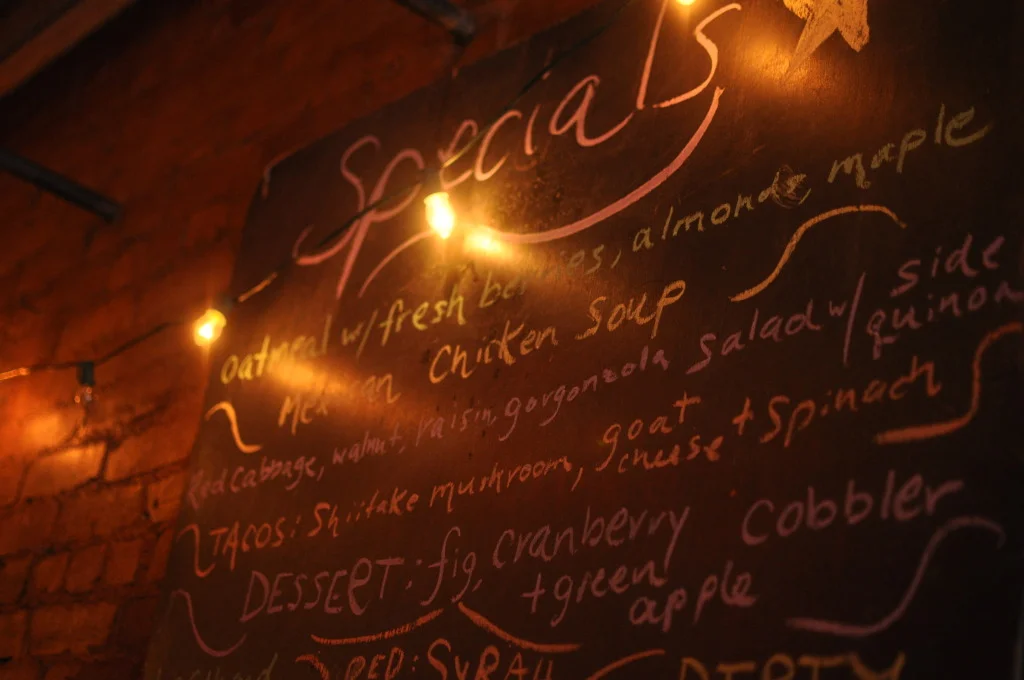 Specials
oatmeal w/ fresh berries, almonds maple
Mexican Chicken Soup
Red Cabbage, walnut, raisin, gorgonzola Salad w/ side quinoa
TACOS: Shiitake mushroom, goat cheese + Spinach
DESSERT: fig, cranberry cobbler
+ green apple
RED: SYRAH
DIRTY